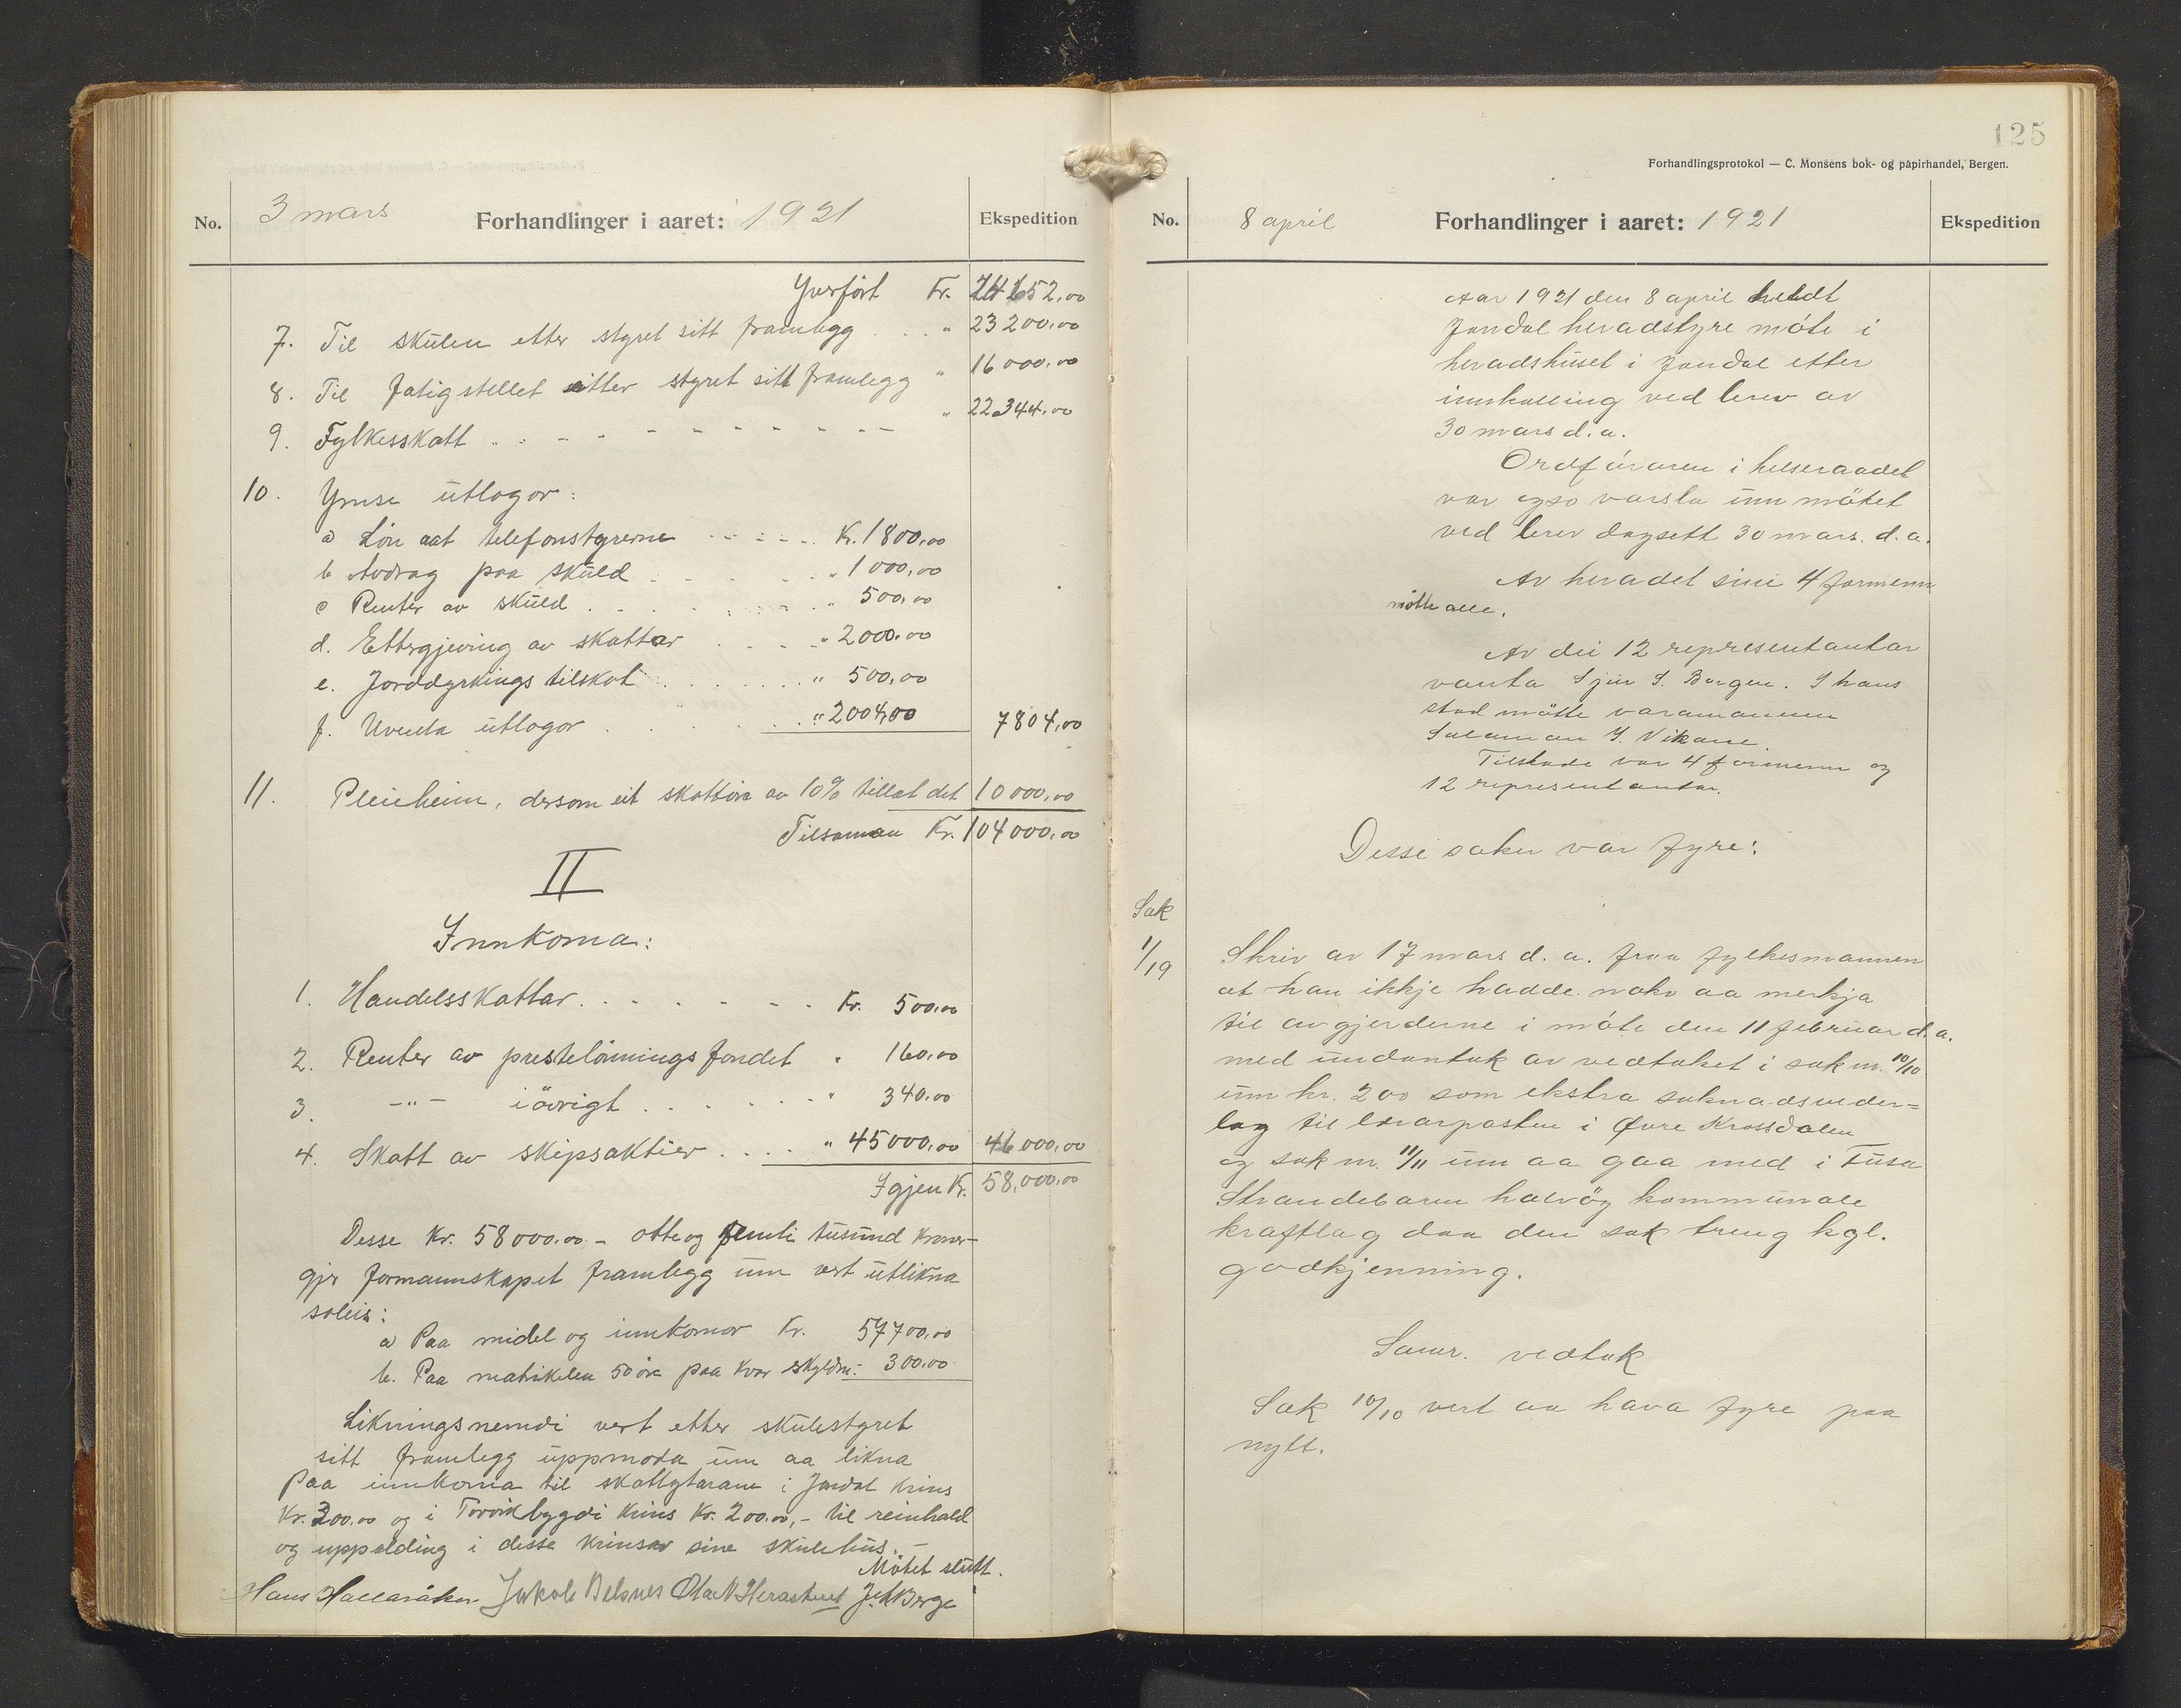 No. 3 mars Forhandlinger i aaret: 1921 Ekspedition
Yverført Kr. 24652,00
7. Til skulen etter styret sitt framlegg . . . " 23200,00
8. Til fatigstellet etter styret sitt framlegg " 16000,00
9. Fylkesskatt . . - - - - - - - - - - " 22344,00
10. Ymse utlogor:
a Løn aat telefonstyrerne - - - - . Kr. 1800,00
b Avdrag paa skuld . . . . . " 1000,00
c Renter av skuld . . . . . . " 500,00
d. Ettergjeving av skattar . . . . " 2000,00
e. Jorddyrkings tilskot . . . . . . " 500,00
f. Uventa utlogor . . . . . . . " 2004,00 7804,00
11. Pleieheim, dersom eit skattøre av 10% tillet det 10000,00
Tilsaman Kr. 104000,00
II
Innkoma:
1. Handelsskattar . . - - - - - . Kr. 500,00
2. Renter av prestelønningsfondet " 160,00
3. -"- iøvrigt . . . . . . . " 340,00
4. Skatt av skipsaktier . . . . " 45000,00 46000,00
Igjen Kr. 58,000,00
Desse Kr. 58000.00 - otte og femti tusund kroner-
gjer formannskapet framlegg um vert utlikna
soleis:
a Paa midel og innkomor Kr. 57700,00
b. Paa matrikelen 50 øre paa kvar skyldm: 300,00
Likningsnemdi vert etter skulestyret
sitt framlegg uppmoda um aa likna
paa innkoma til skattytarane i Jondal krins
Kr. 300.00 og i Torvikbygdi krins Kr. 200.00,- til reinhald
og uppelding i desse krinsar sine skulehus. -
Møtet slutt.
Hans Hallaråker Jakob Belsnes Olav N Herastveit J. H. Berge
125
Forhandlingsprotokol — C. Monsens bok- og papirhandel, Bergen.
No. 8 april Forhandlinger i aaret: 1921 Ekspedition
Aar 1921 den 8 april heldt
Jondal heradstyre møte i
heradshuset i Jondal etter
innkalling ved brev av
30 mars d.a.
Ordføraren i helseraadet
var ogso varsla um møtet
ved brev dagsett 30 mars. d.a.
Av heradet sine 4 formenn
møtte alle.
Av dei 12 representantar
vanta Sjur S. Bergen. I hans
stad møtte varamannen
Salamon J. Vikane.
Tilstade var 4 formenn og
12 representantar.
Desse saker var fyre:
Sak
1/19 Skriv av 17 mars d. a. fraa fylkesmannen
at han ikkje hadde noko aa merkja
til avgjerderne i møte den 11 februar d.a.
med undantak av vedtaket i sak nr. 10/10
um kr. 200 som ekstra soknadsveder=
lag til lærarposten i Øvre Krossdalen
og sak nr. 11/11 um aa gaa med i Fusa
Strandebarm halvøy kommunale
kraftlag daa den sak treng kgl.
godkjenning.
Samr. vedtak
Sak 10/10 vert aa hava fyre paa
nytt.